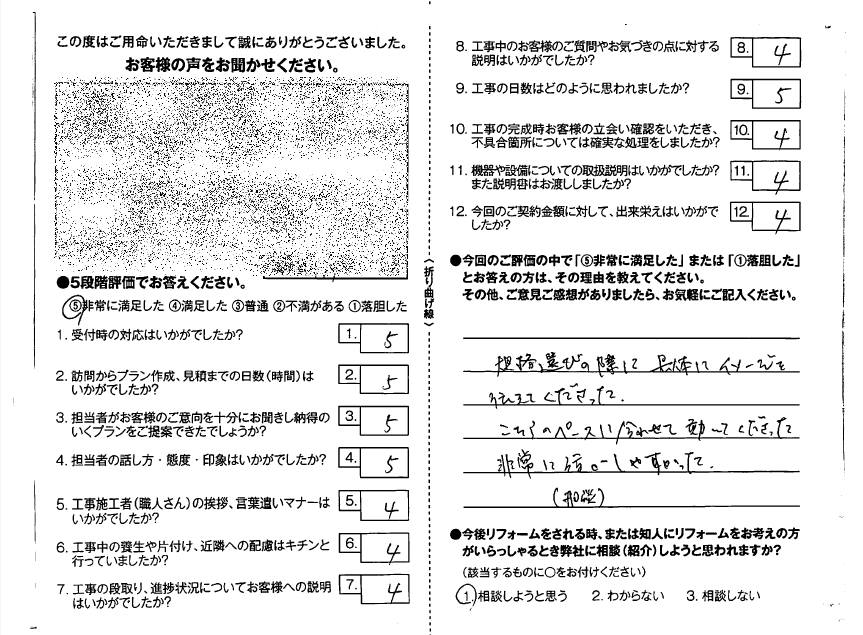 この度はご用命いただきまして誠にありがとうございました。
お客様の声をお聞かせください。
●5段階評価でお答えください。
⑤非常に満足した ④満足した ③普通 ②不満がある ①落胆した
1. 受付時の対応はいかがでしたか? 1. 5
2. 訪問からプラン作成、見積までの日数(時間)は 2. 5
いかがでしたか?
3. 担当者がお客様のご意向を十分にお聞きし納得の 3. 5
いくプランをご提案できたでしょうか?
4. 担当者の話し方・態度・印象はいかがでしたか? 4. 5
5. 工事施工者(職人さん)の挨拶、言葉遣いマナーは 5. 4
いかがでしたか?
6. 工事中の養生や片付け、近隣への配慮はキチンと 6. 4
行っていましたか?
7. 工事の段取り、進捗状況についてお客様への説明 7. 4
はいかがでしたか?
〈折り曲げ線〉
8. 工事中のお客様のご質問やお気づきの点に対する 8. 4
説明はいかがでしたか?
9. 工事の日数はどのように思われましたか? 9. 5
10. 工事の完成時お客様の立会い確認をいただき、 10. 4
不具合箇所については確実な処理をしましたか?
11. 機器や設備についての取扱説明はいかがでしたか? 11. 4
また説明書はお渡ししましたか?
12. 今回のご契約金額に対して、出来栄えはいかがで 12. 4
したか?
●今回のご評価の中で「⑤非常に満足した」または「①落胆した」
とお答えの方は、その理由を教えてください。
その他、ご意見ご感想がありましたら、お気軽にご記入ください。
選びの際に 具体にイメージを
伝えてくださった。
こちらのペースに合わせて動いてくださった
非常に しやすかった。
●今後リフォームをされる時、または知人にリフォームをお考えの方
がいらっしゃるとき弊社に相談(紹介)しようと思われますか?
(該当するものに○をお付けください)
1. 相談しようと思う 2. わからない 3. 相談しない